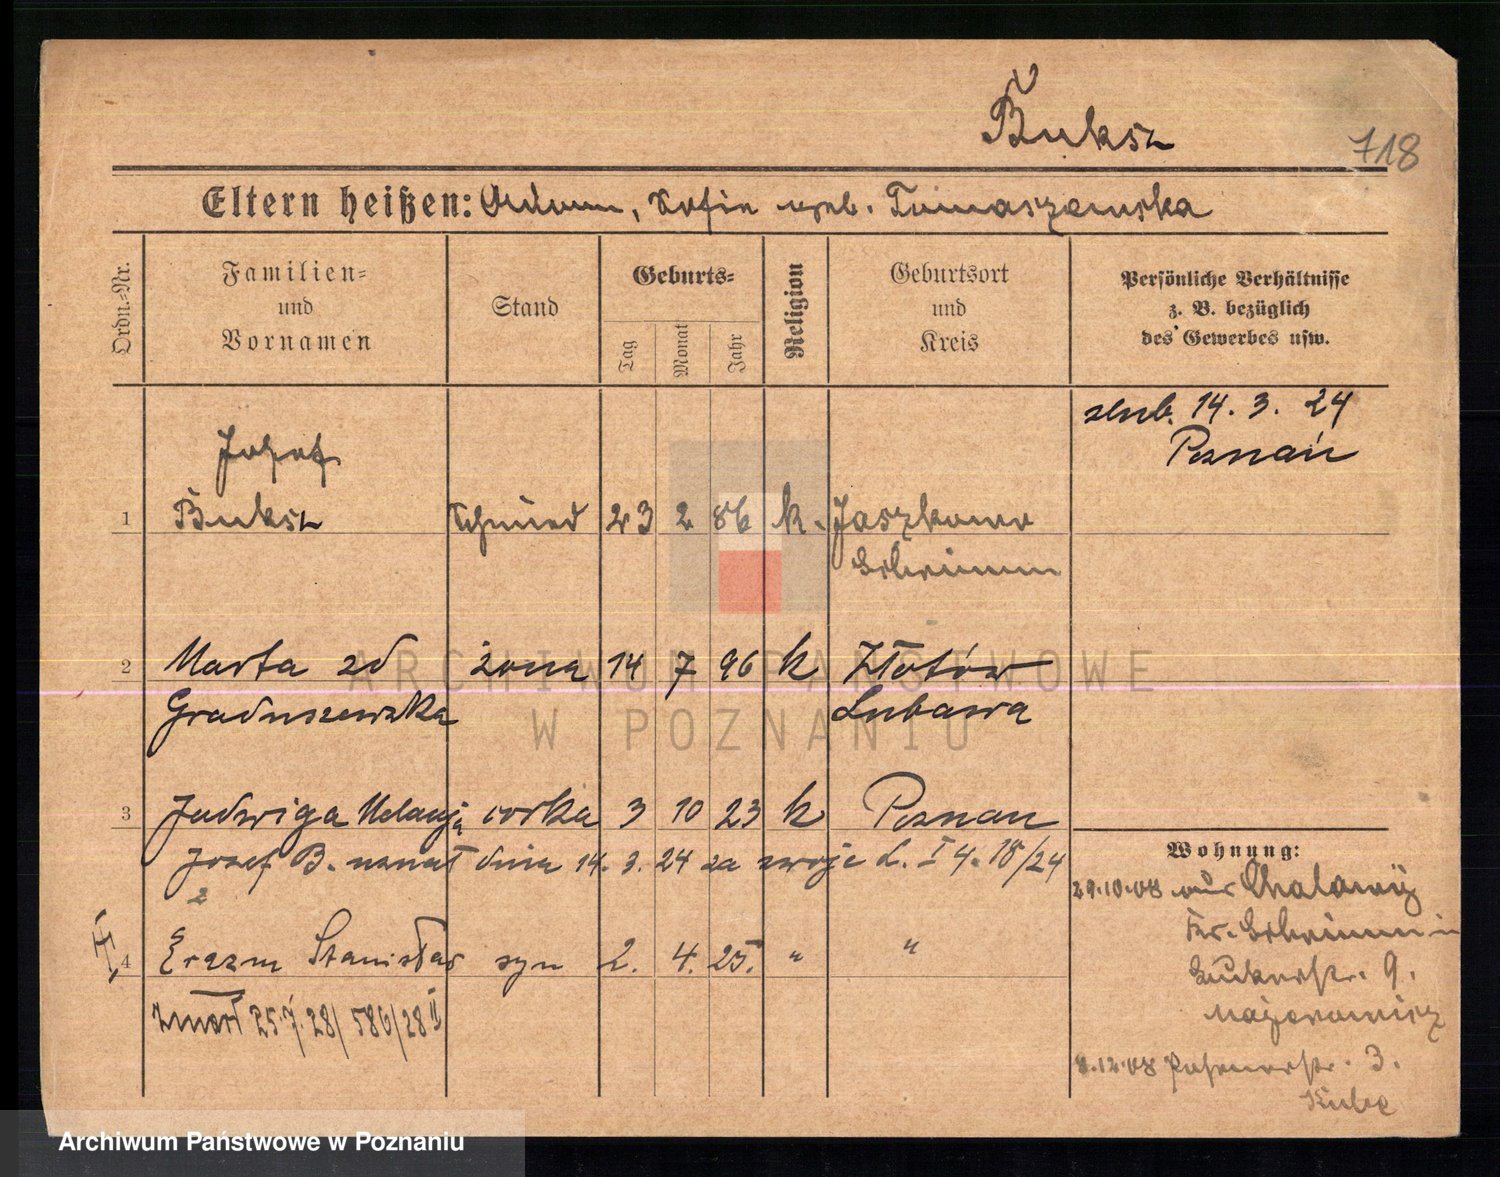 Buksz
718
Eltern heißen: Adam, Sofie geb. Tomaszewska
Ordn.-Nr.
Familien-
und
Vornamen
Stand
Geburts-
Tag
Monat
Jahr
Religion
Geburtsort
und
Kreis
Persönliche Verhältnisse
z. B. bezüglich
des Gewerbes usw.
ślub. 14. 3. 24
Poznań
Josef
1 Buksz Schmied 23 2 86 k. Jaszkowo
Schrimm
2 Marta zd żona 14 7 96 k Złotów
Graduszewska Lubawa
3 Jadwiga Melanja córka 3 10 23 k Poznan
Jozef B. uznał dnia 14. 3. 24 za swoje d. I 4. 18/24
2
4 Erazm Stanisław syn 2. 4. 25. " "
zmarł 25.7.28/ 586/28 II
Wohnung:
29.10.08 aus Chalawy
Kr. Schrimm in
9.
8.12.08 Posenerstr. 3.
Kube
ARCHIWUM PAŃSTWOWE
W POZNANIU
Archiwum Państwowe w Poznaniu